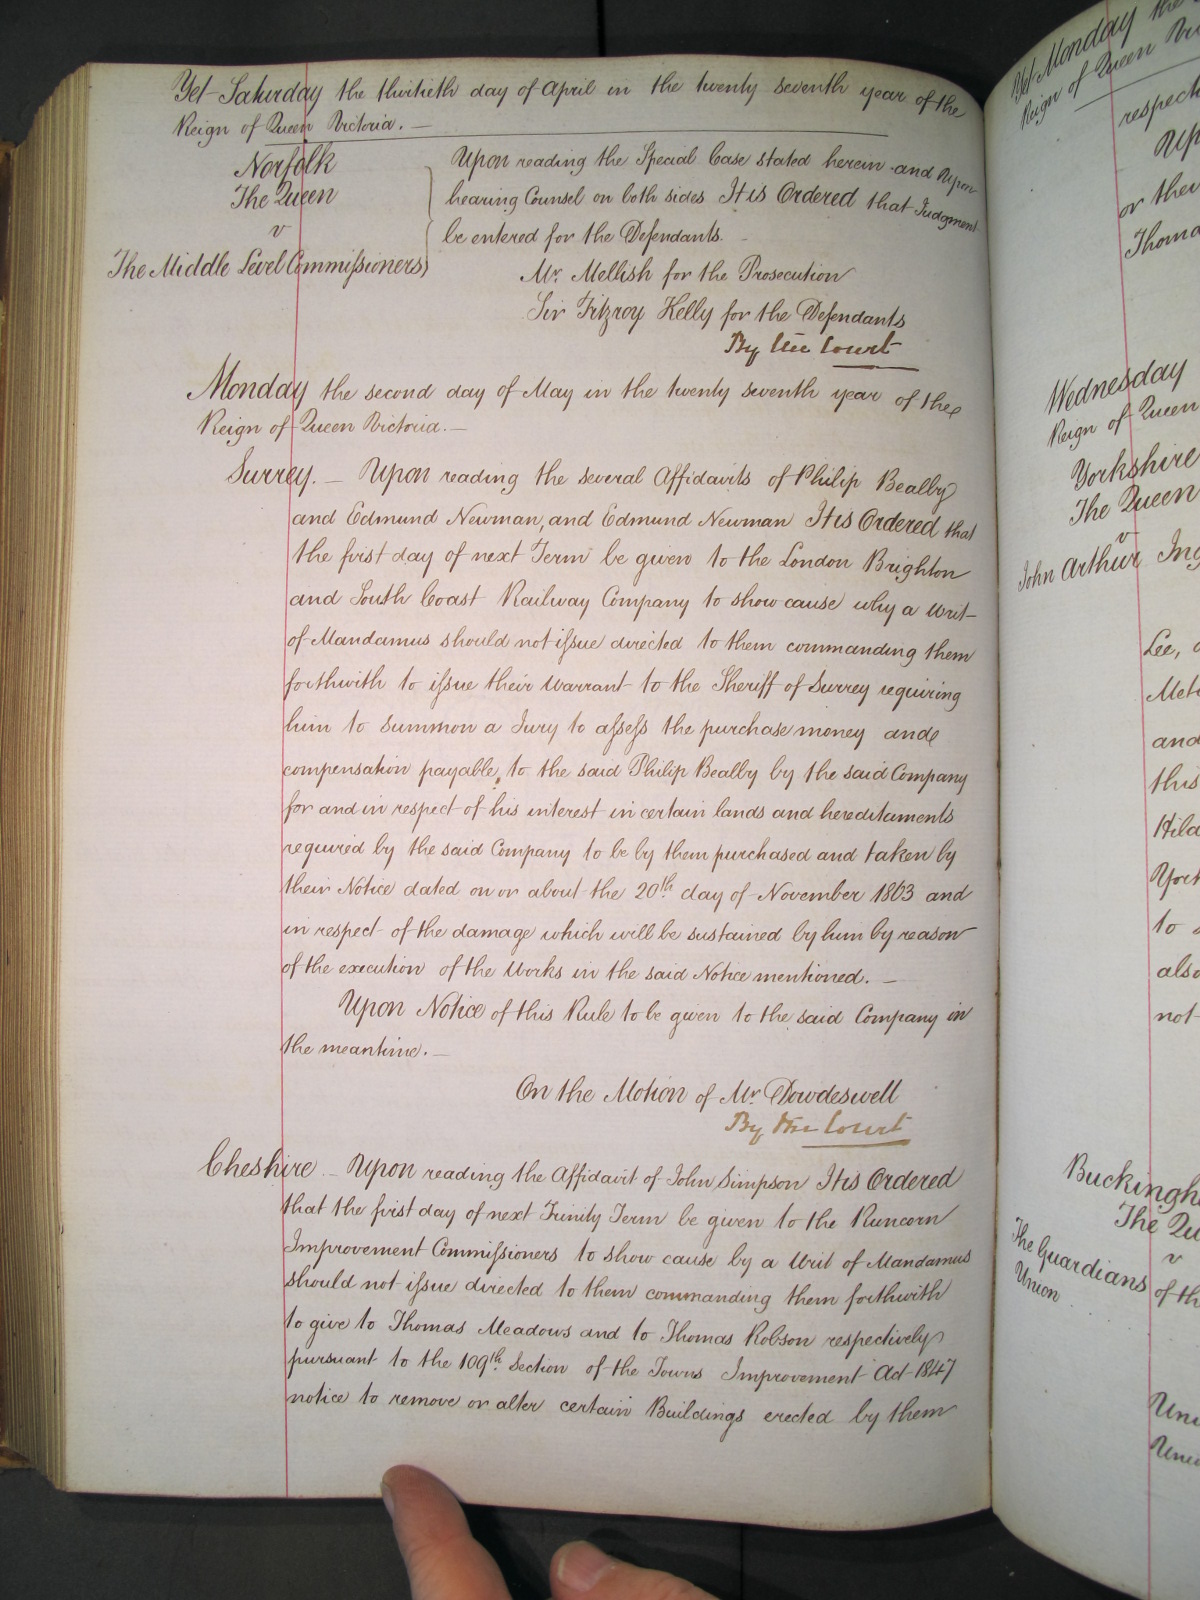 Yet Saturday the thirtieth day of April in the twenty seventh year of the
Reign of Queen Victoria. —
Norfolk
The Queen
v
The Middle Level Commissioners
Upon reading the Special Case stated herein and Upon
hearing Counsel on both sides It is Ordered that Judgment
be entered for the Defendants. -
Mr. Mellish for the Prosecution
Sir Fitzroy Kelly for the Defendants
By the Court
Monday the second day of May in the twenty seventh year of the
Reign of Queen Victoria. —
Surrey. — Upon reading the several Affidavits of Philip Bealby
and Edmund Newman, and Edmund Newman It is Ordered that
the first day of next Term be given to the London Brighton
and South Coast Railway Company to show cause why a Writ
of Mandamus should not issue directed to them commanding them
forthwith to issue their Warrant to the Sheriff of Surrey requiring
him to summon a Jury to assess the purchase money and
compensation payable, to the said Philip Bealby by the said Company
for and in respect of his interest in certain lands and hereditaments
required by the said Company to be by them purchased and taken by
their Notice dated on or about the 20th. day of November 1863 and
in respect of the damage which will be sustained by him by reason
of the execution of the Works in the said Notice mentioned. —
Upon Notice of this Rule to be given to the said Company in
the meantime. —
On the Motion of Mr. Dowdeswell
By the Court
Cheshire. — Upon reading the Affidavit of John Simpson It is Ordered
that the first day of next Trinity Term be given to the Runcorn
Improvement Commissioners to show cause by a Writ of Mandamus
should not issue directed to them commanding them forthwith
to give to Thomas Meadows and to Thomas Robson respectively
pursuant to the 109th. Section of the Towns Improvement Act 1847
notice to remove or alter certain Buildings erected by them
Yet Monday the
Reign of Queen
respect
Up
or the
Thoma
Wednesday
Reign of Queen
Yorkshire
The Queen
v
John Arthur Ing
Lee,
Met
and
this
Hild
York
to
also
not
Buckingh
The Qu
v
The Guardians of th
Union
Uni
Unio